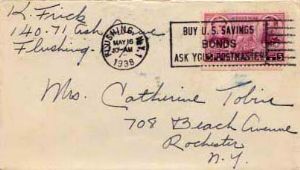 K. Frick
140-71 Ash Ave
Flushing.
FLUSHING, N.Y.
MAY 16
1938
BUY U.S. SAVINGS
BONDS
ASK YOUR POSTMASTER
Mrs. Catherine Tobin
708 Beach Avenue
Rochester
N.Y.